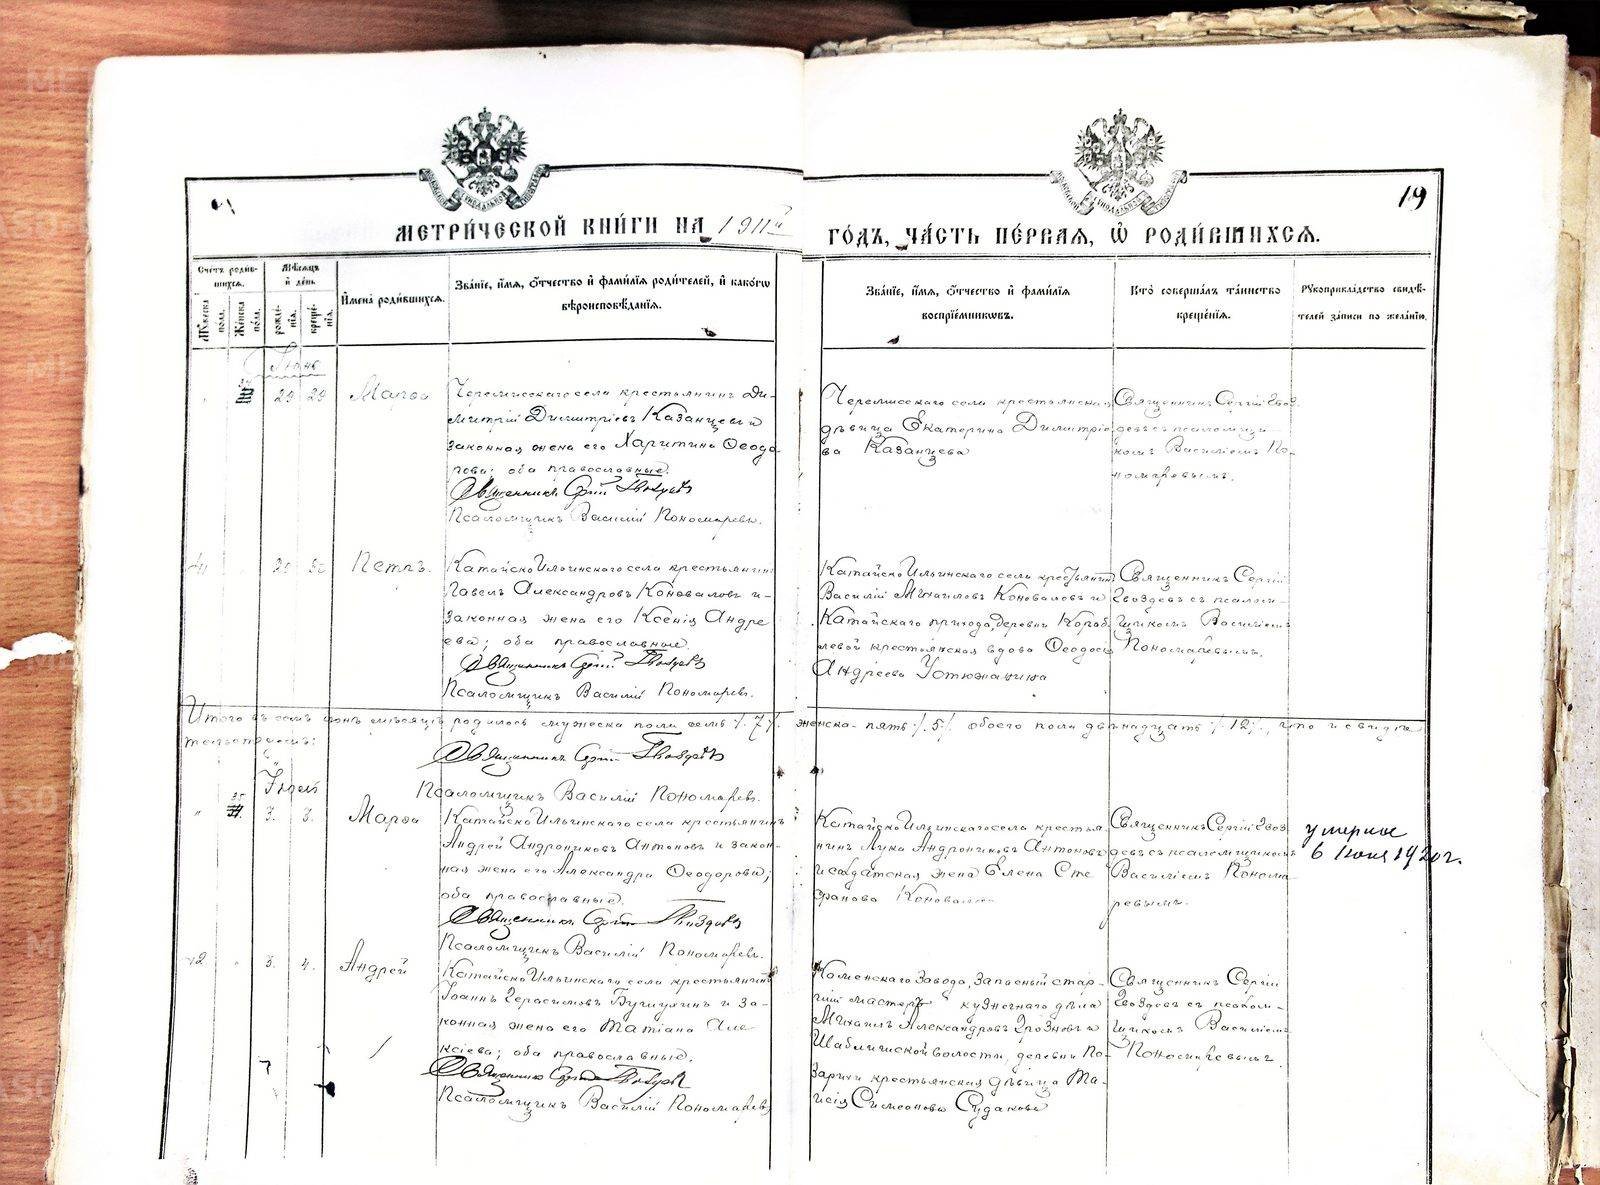 19
МЕТРИ́ЧЕСКОЙ КНИ́ГИ НА 1911й
ГО́ДЪ, ЧА́СТЬ ПЕ́РВАЯ, Ѡ РОДИ́ВШИХСЯ.
Счетъ роди́вшихся.
Мꙋ́жеска пола.
Же́нска по́ла.
Мѣ́сяцъ и҆ де́нь
рожде́нїя.
креще́нїя.
И҆мена̀ роди́вшихся.
Зва́нїе, и҆́мя, ѻ҆́тчество и҆ фамѝлїя роди́телей, и҆ како́гѡ
вѣроисповѣ́данїя.
Зва́нїе, и҆́мя, ѻ҆́тчество и҆ фамѝлїя
воспрїе́мникѡвъ.
Кто̀ соверша́лъ та́инство
креще́нїя.
Рꙋкоприкла́дство свидѣ́-
телей за́писи по жела́нїю.
Іюнь
29 29
Марѳа
Черемисскаго села крестьянинъ Ди-
митрій Димитріевъ Казанцевъ и
законная жена его Харитина Ѳеодо-
рова; оба православные.
Священникъ Сергій Гвоздевъ
Псаломщикъ Василій Пономаревъ.
Черемисскаго села крестьянская
дѣвица Екатерина Димитріе
ва Казанцева
Священникъ Сергій Гвоз-
девъ съ псаломщи-
комъ Василіемъ По-
номаревымъ.
Петръ.
Катайско Ильинскаго села крестьянинъ
Павелъ Александровъ Коноваловъ и
законная жена его Ксенія Андре
ева; оба православные
Священникъ Сергій Гвоздевъ
Псаломщикъ Василій Пономаревъ.
Катайско Ильинскаго села крестьянинъ
Василій Михаиловъ Коноваловъ и
Катайскаго прихода, деревни Кораб-
левой крестьянская вдова Ѳеодосія
Андреева Устюжанина
Священникъ Сергій
Гвоздевъ съ псалом-
щикомъ Василіемъ
Пономаревымъ.
Итого въ семъ іюнѣ мѣсяцѣ родилось мужеска пола семь /.7/. женска- пять /.5/. обоего пола двѣнадцать /.12/., что и свидѣ
тельствуемъ:
Священникъ Сергій Гвоздевъ
Псаломщикъ Василій Пономаревъ.
Іюль
35
„ 3. 3.
Марѳа
Катайско Ильинскаго села крестьянинъ
Андрей Андрониковъ Антоновъ и закон-
ная жена его Александра Ѳеодорова;
оба православные.
Священникъ Сергій Гвоздевъ
Псаломщикъ Василій Пономаревъ.
Катайско Ильинскаго села крестья-
нинъ Лука Андрониковъ Антоновъ
и солдатская жена Елена Сте
фанова Коновалова
Священникъ Сергій Гвоз
девъ съ псаломщикомъ
Василіемъ Понома
ревымъ.
умерла
6 1920 г.
42 „ 3. 4.
Андрей
Катайско Ильинскаго села крестьянинъ
Іоаннъ Герасимовъ и за-
конная жена его Татіана Але-
ксіева; оба православные.
Священникъ Сергій Гвоздевъ
Псаломщикъ Василій Пономаревъ
Каменскаго Завода, Запасный стар-
шій мастеръ кузнечнаго дѣла
Михаилъ Александровъ Грозновъ и
Шаблишской волости, деревни По-
зарихи крестьянская дѣвица Та-
исія Симеонова Судакова
Священникъ Сергій
Гвоздевъ съ псалом-
щикомъ Василіемъ
Пономаревымъ